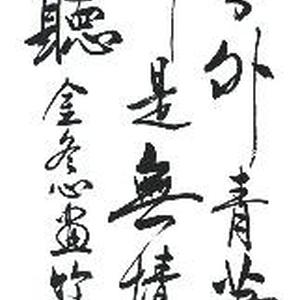 外青
是無情
聽金冬心畫竹